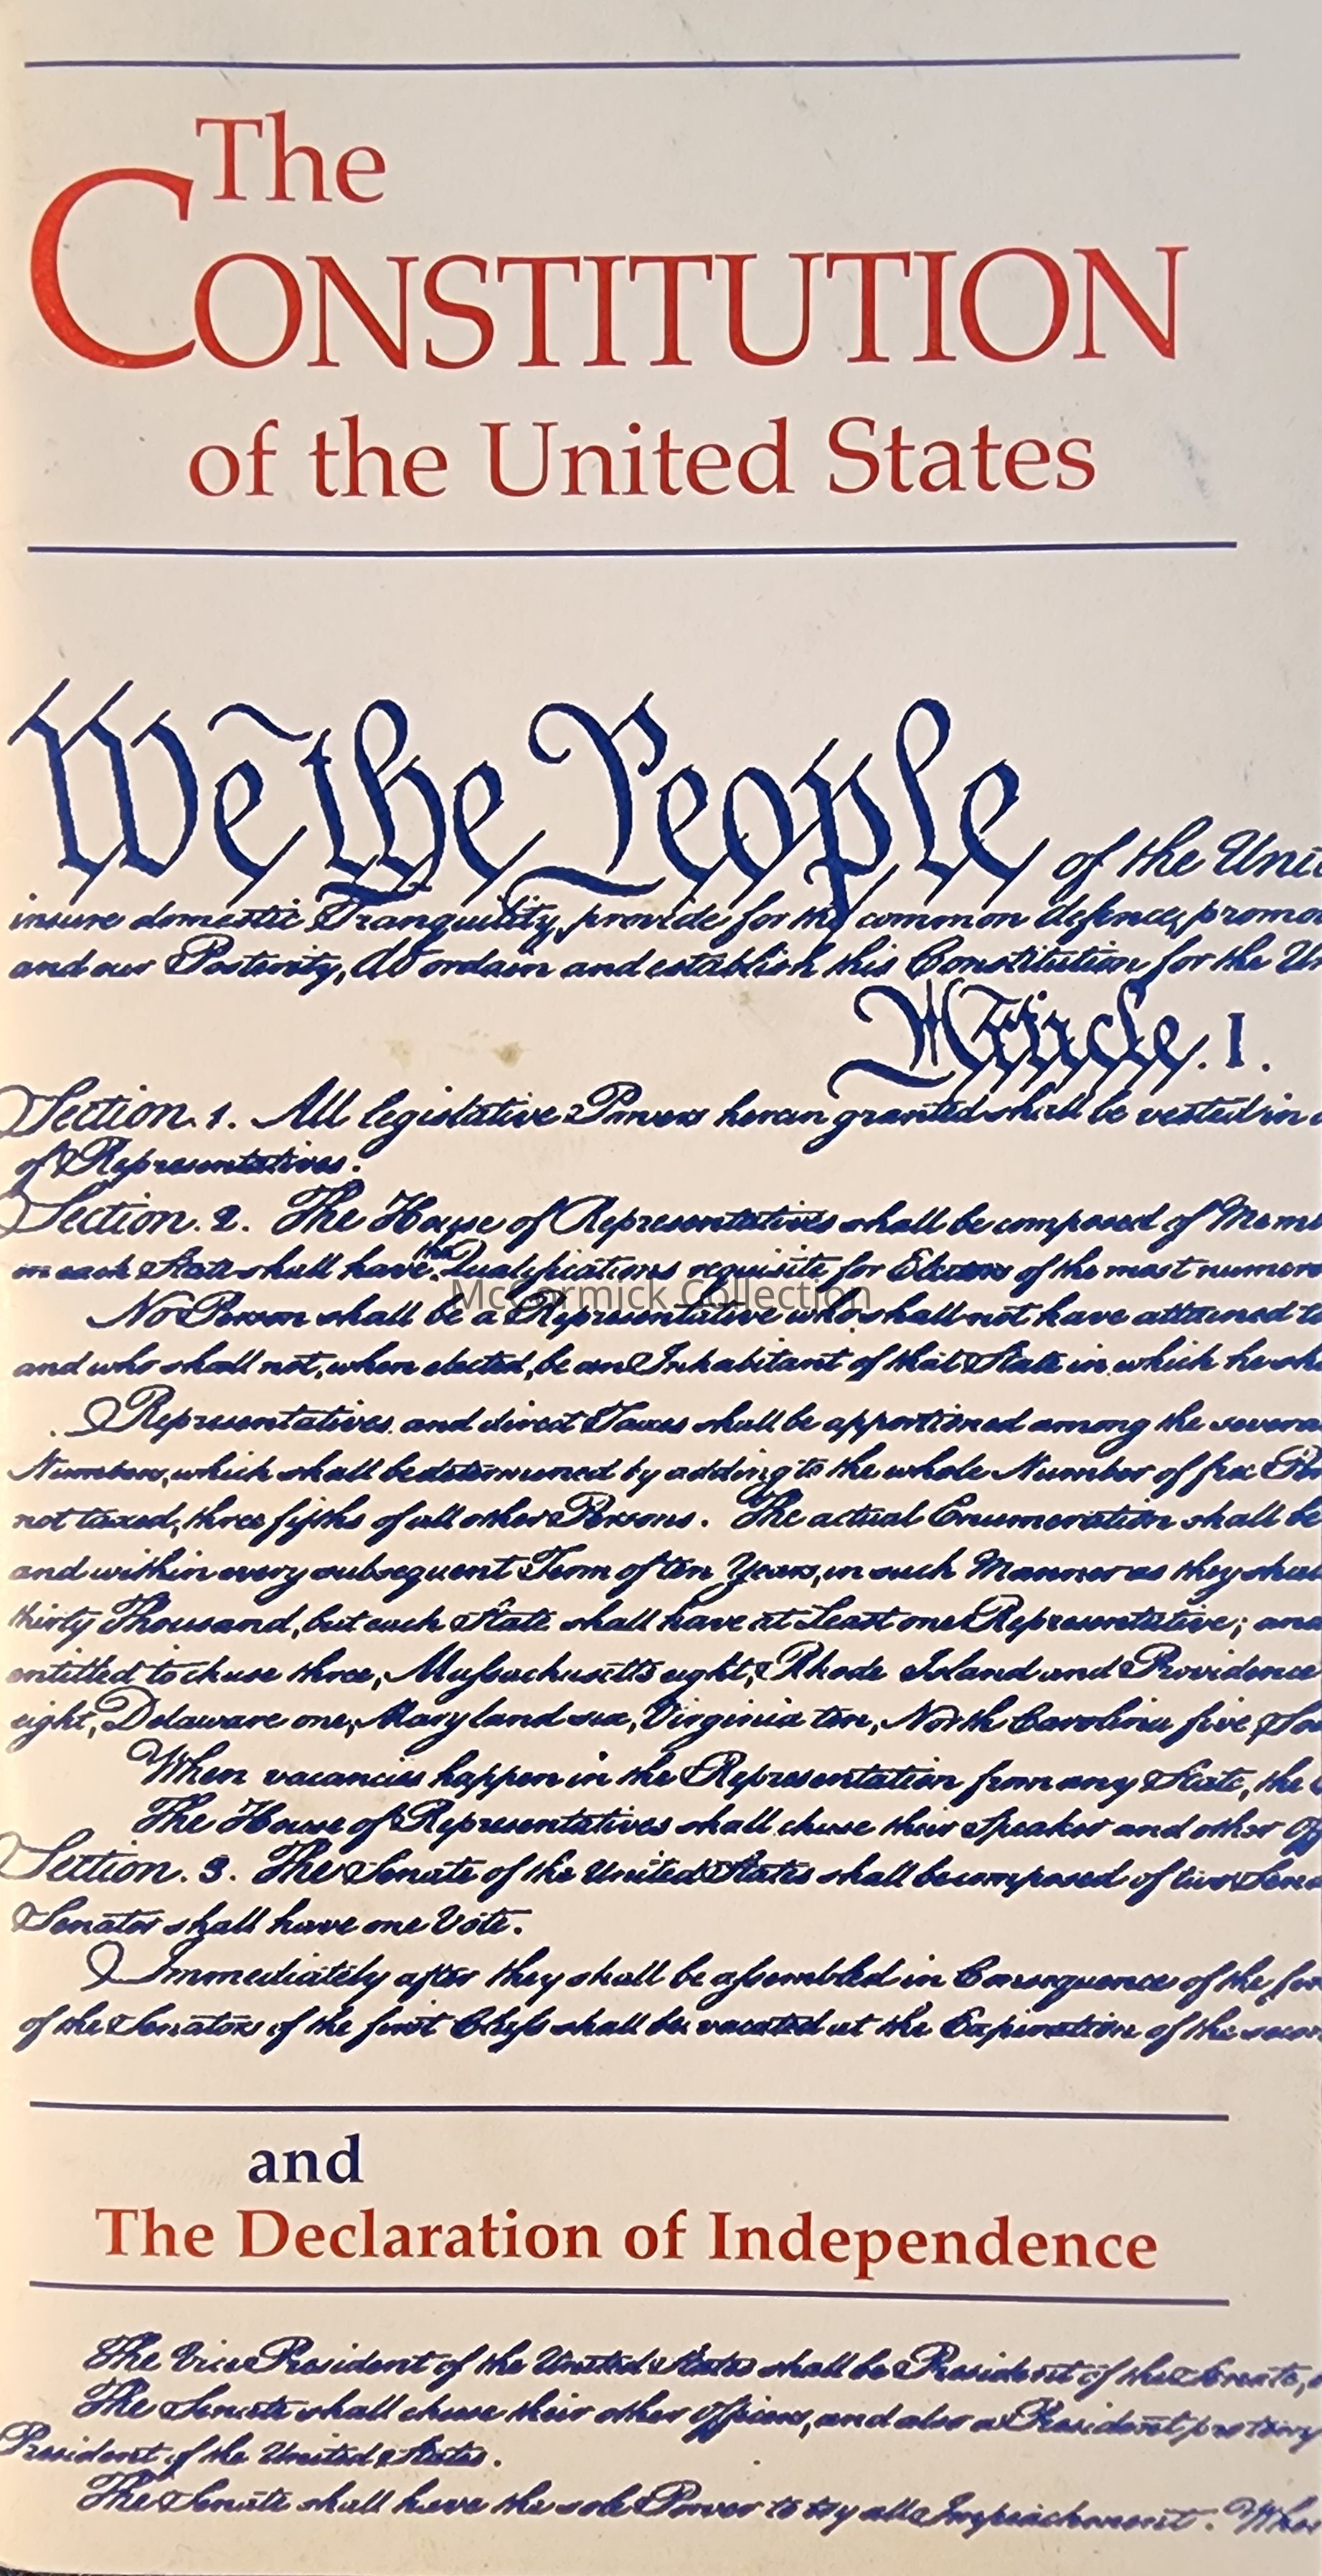 The
CONSTITUTION
of the United States
We the People of the Uni
insure domestic Tranquility, provide for the common defence, promo
and our Posterity, do ordain and establish this Constitution for the Un
Article. I.
Section. 1. All legislative Powers herein granted shall be vested in
of Representatives.
Section. 2. The House of Representatives shall be composed of Memb
in each State shall have the Qualifications requisite for Electors of the most numero
McCormick Collection
No Person shall be a Representative who shall not have attained to
and who shall not, when elected, be an Inhabitant of that State in which he sha
Representatives and direct Taxes shall be apportioned among the severa
Numbers, which shall be determined by adding to the whole Number of free Per
not taxed, three fifths of all other Persons. The actual Enumeration shall be
and within every subsequent Term of ten Years, in such Manner as they shal
thirty Thousand, but each State shall have at Least one Representative; and
entitled to chuse three, Massachusetts eight, Rhode Island and Providence
eight, Delaware one, Maryland six, Virginia ten, North Carolina five, Sou
When vacancies happen in the Representation from any State, the
The House of Representatives shall chuse their Speaker and other Of
Section. 3. The Senate of the United States shall be composed of two Sena
Senator shall have one Vote.
Immediately after they shall be assembled in Consequence of the fir
of the Senators of the first Class shall be vacated at the Expiration of the secon
and
The Declaration of Independence
The Vice President of the United States shall be President of the Senate,
The Senate shall chuse their other Officers, and also a President pro temp
President of the United States.
The Senate shall have the sole Power to try all Impeachments. When